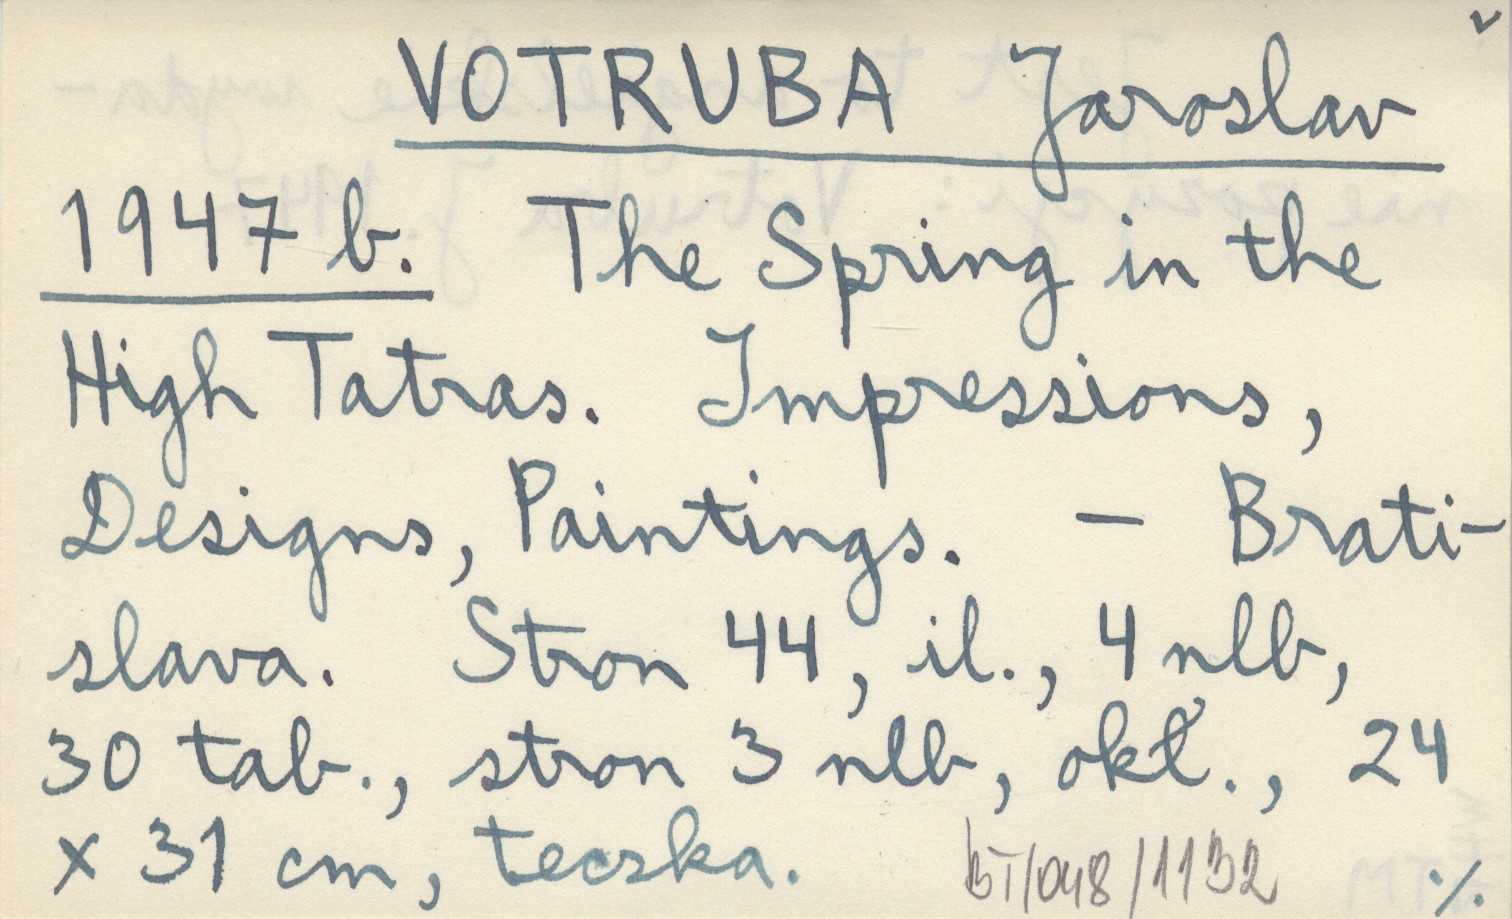 VOTRUBA Jaroslav
1947 b. The Spring in the
High Tatras. Impressions,
Designs, Paintings. – Brati-
slava. Stron 44, il., 4 nlb,
30 tab., stron 3 nlb, okł., 24
x 31 cm, teczka.
BT/048/1132
./.